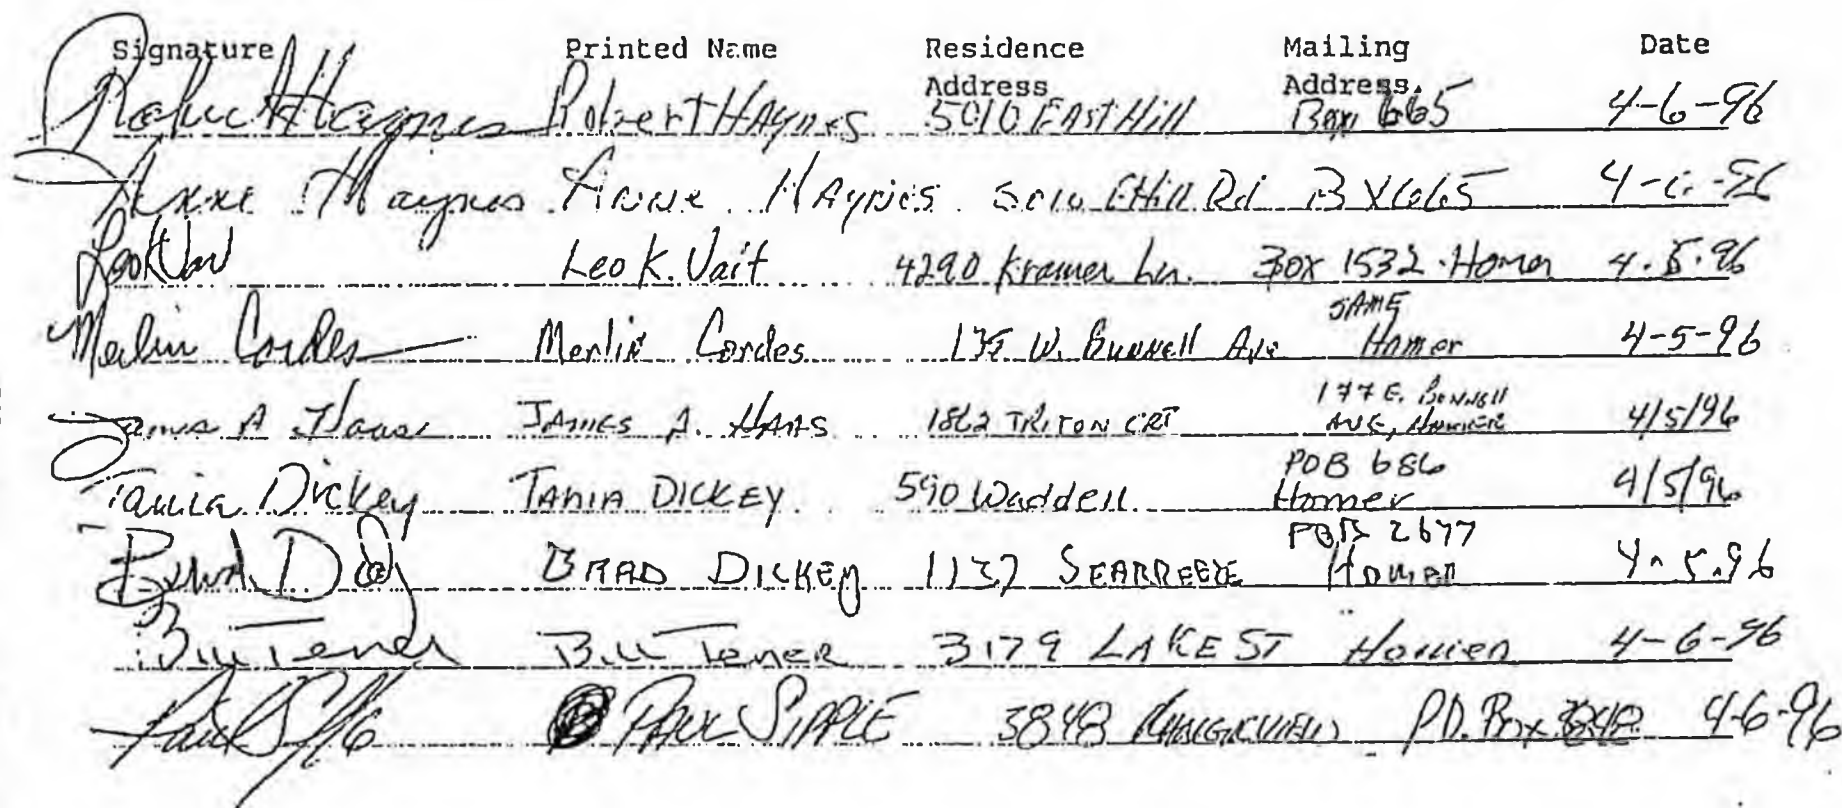 Signature Printed Name Residence Address Mailing Address Date
Robert Haynes Robert Haynes 5010 East Hill Box 665 4-6-96
Anne Haynes Anne Haynes 5010 E Hill Rd BX 665 4-6-96
Leo K. Vait 4290 Kramer Ln. Box 1532 Homer 4.5.96
Merlin Cordes Merlin Cordes 175 W. Bunnell Ave SAME Homer 4-5-96
James A Haas JAMES A. HAAS 1862 TRITON CRT 177 E. Bunnell AVE, Homer 4/5/96
Tania Dickey TANIA DICKEY 590 Waddell POB 686 Homer 4/5/96
BRAD DICKEY 1137 SEABREEZE POB 2677 Homer 4.5.96
Bill Tener Bill Tener 3179 LAKE ST Homer 4-6-96
PAUL SIPPLE 3848 P.O. Box 3848 4-6-96